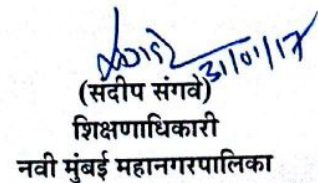 31/01/17
(सदीप संगवे)
शिक्षणाधिकारी
नवी मुंबई महानगरपालिका